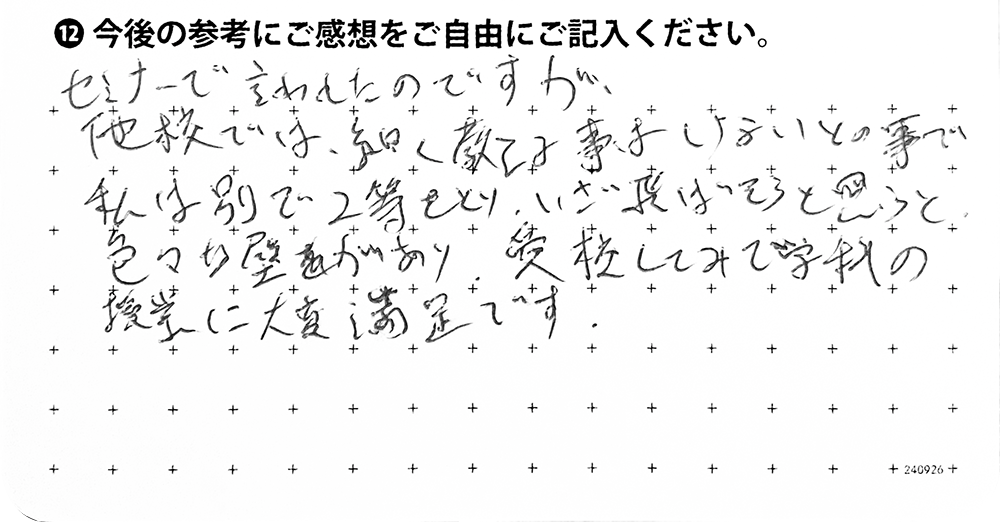 ⓬ 今後の参考にご感想をご自由にご記入ください。
セミナーで言われたのですが、
他校では、細く教える事はしないとの事で
私は別で2等をとり、いざ飛ばそうと思うと、
色々な壁があり、受校してみて学科の
授業に大変満足です.
240926